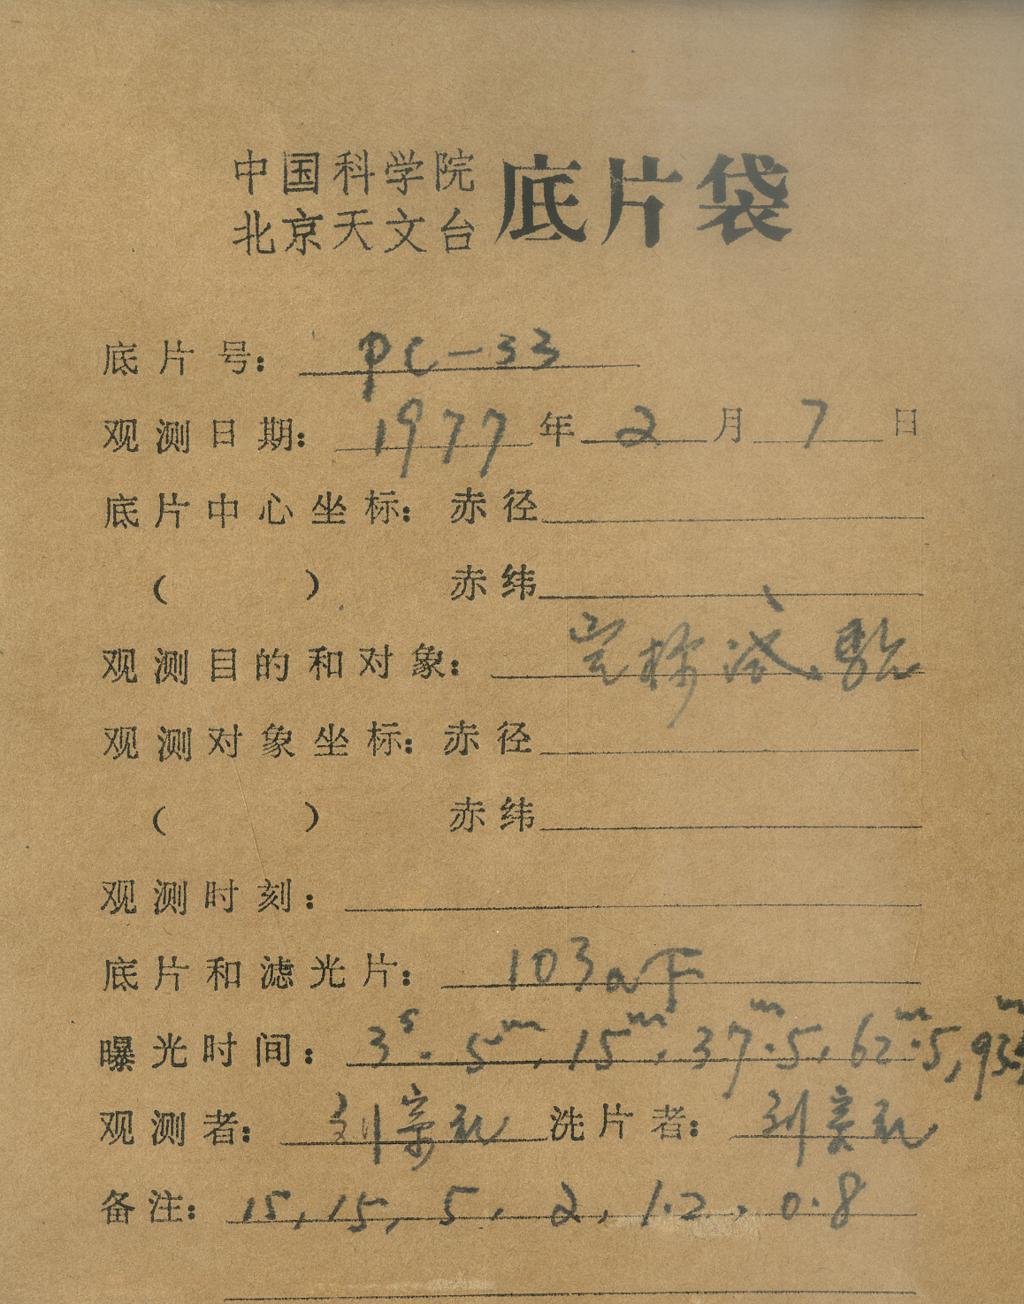 中国科学院
北京天文台 底片袋
底片号: PC-33
观测日期: 1977年2月7日
底片中心坐标: 赤径
( ) 赤纬
观测目的和对象: 定标试验
观测对象坐标: 赤径
( ) 赤纬
观测时刻:
底片和滤光片: 103aF
曝光时间: 3ˢ. 5ᵐ, 15ᵐ, 37ᵐ.5, 62ᵐ.5, 93
观测者: 刘宗礼 洗片者: 刘宗礼
备注: 15, 15, 5, 2, 1.2, 0.8